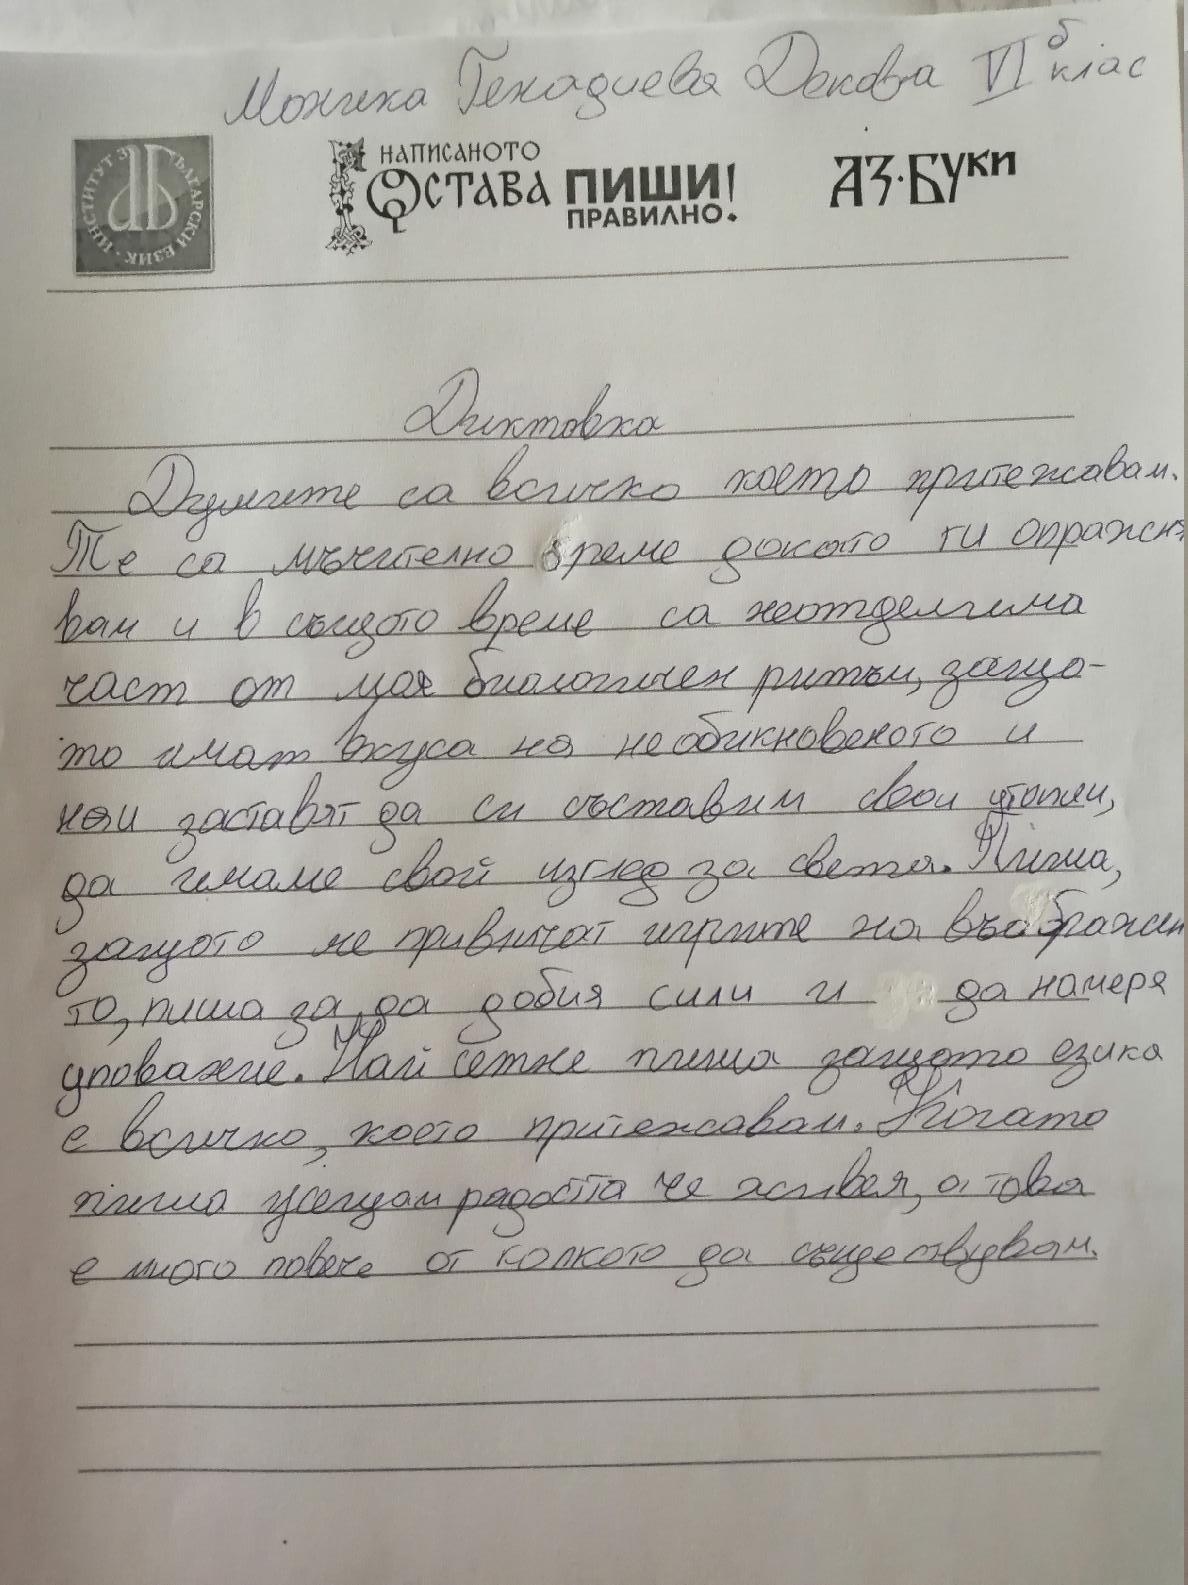 Моника Генадиева Декова VI б клас
ИНСТИТУТ ЗА БЪЛГАРСКИ ЕЗИК
НАПИСАНОТО ОСТАВА ПИШИ ПРАВИЛНО! АЗ·БУКИ
Диктовка
Думите са всичко което притежавам.
Те са мъчително време докато ги опражня-
вам и в същото време са неотделима
част от моя биологичен ритъм, защо-
то имат вкуса на необикновеното и
ни заставят да си съставим свои утопии,
да имаме свой изглед за света. Пиша,
защото ме привличат игрите на въображени
то, пиша за да добия сили и да намеря
упование. Най сетне пиша защото езика
е всичко, което притежавам. Когато
пиша усещам радостта че живея, а това
е много повече от колкото да съществувам.